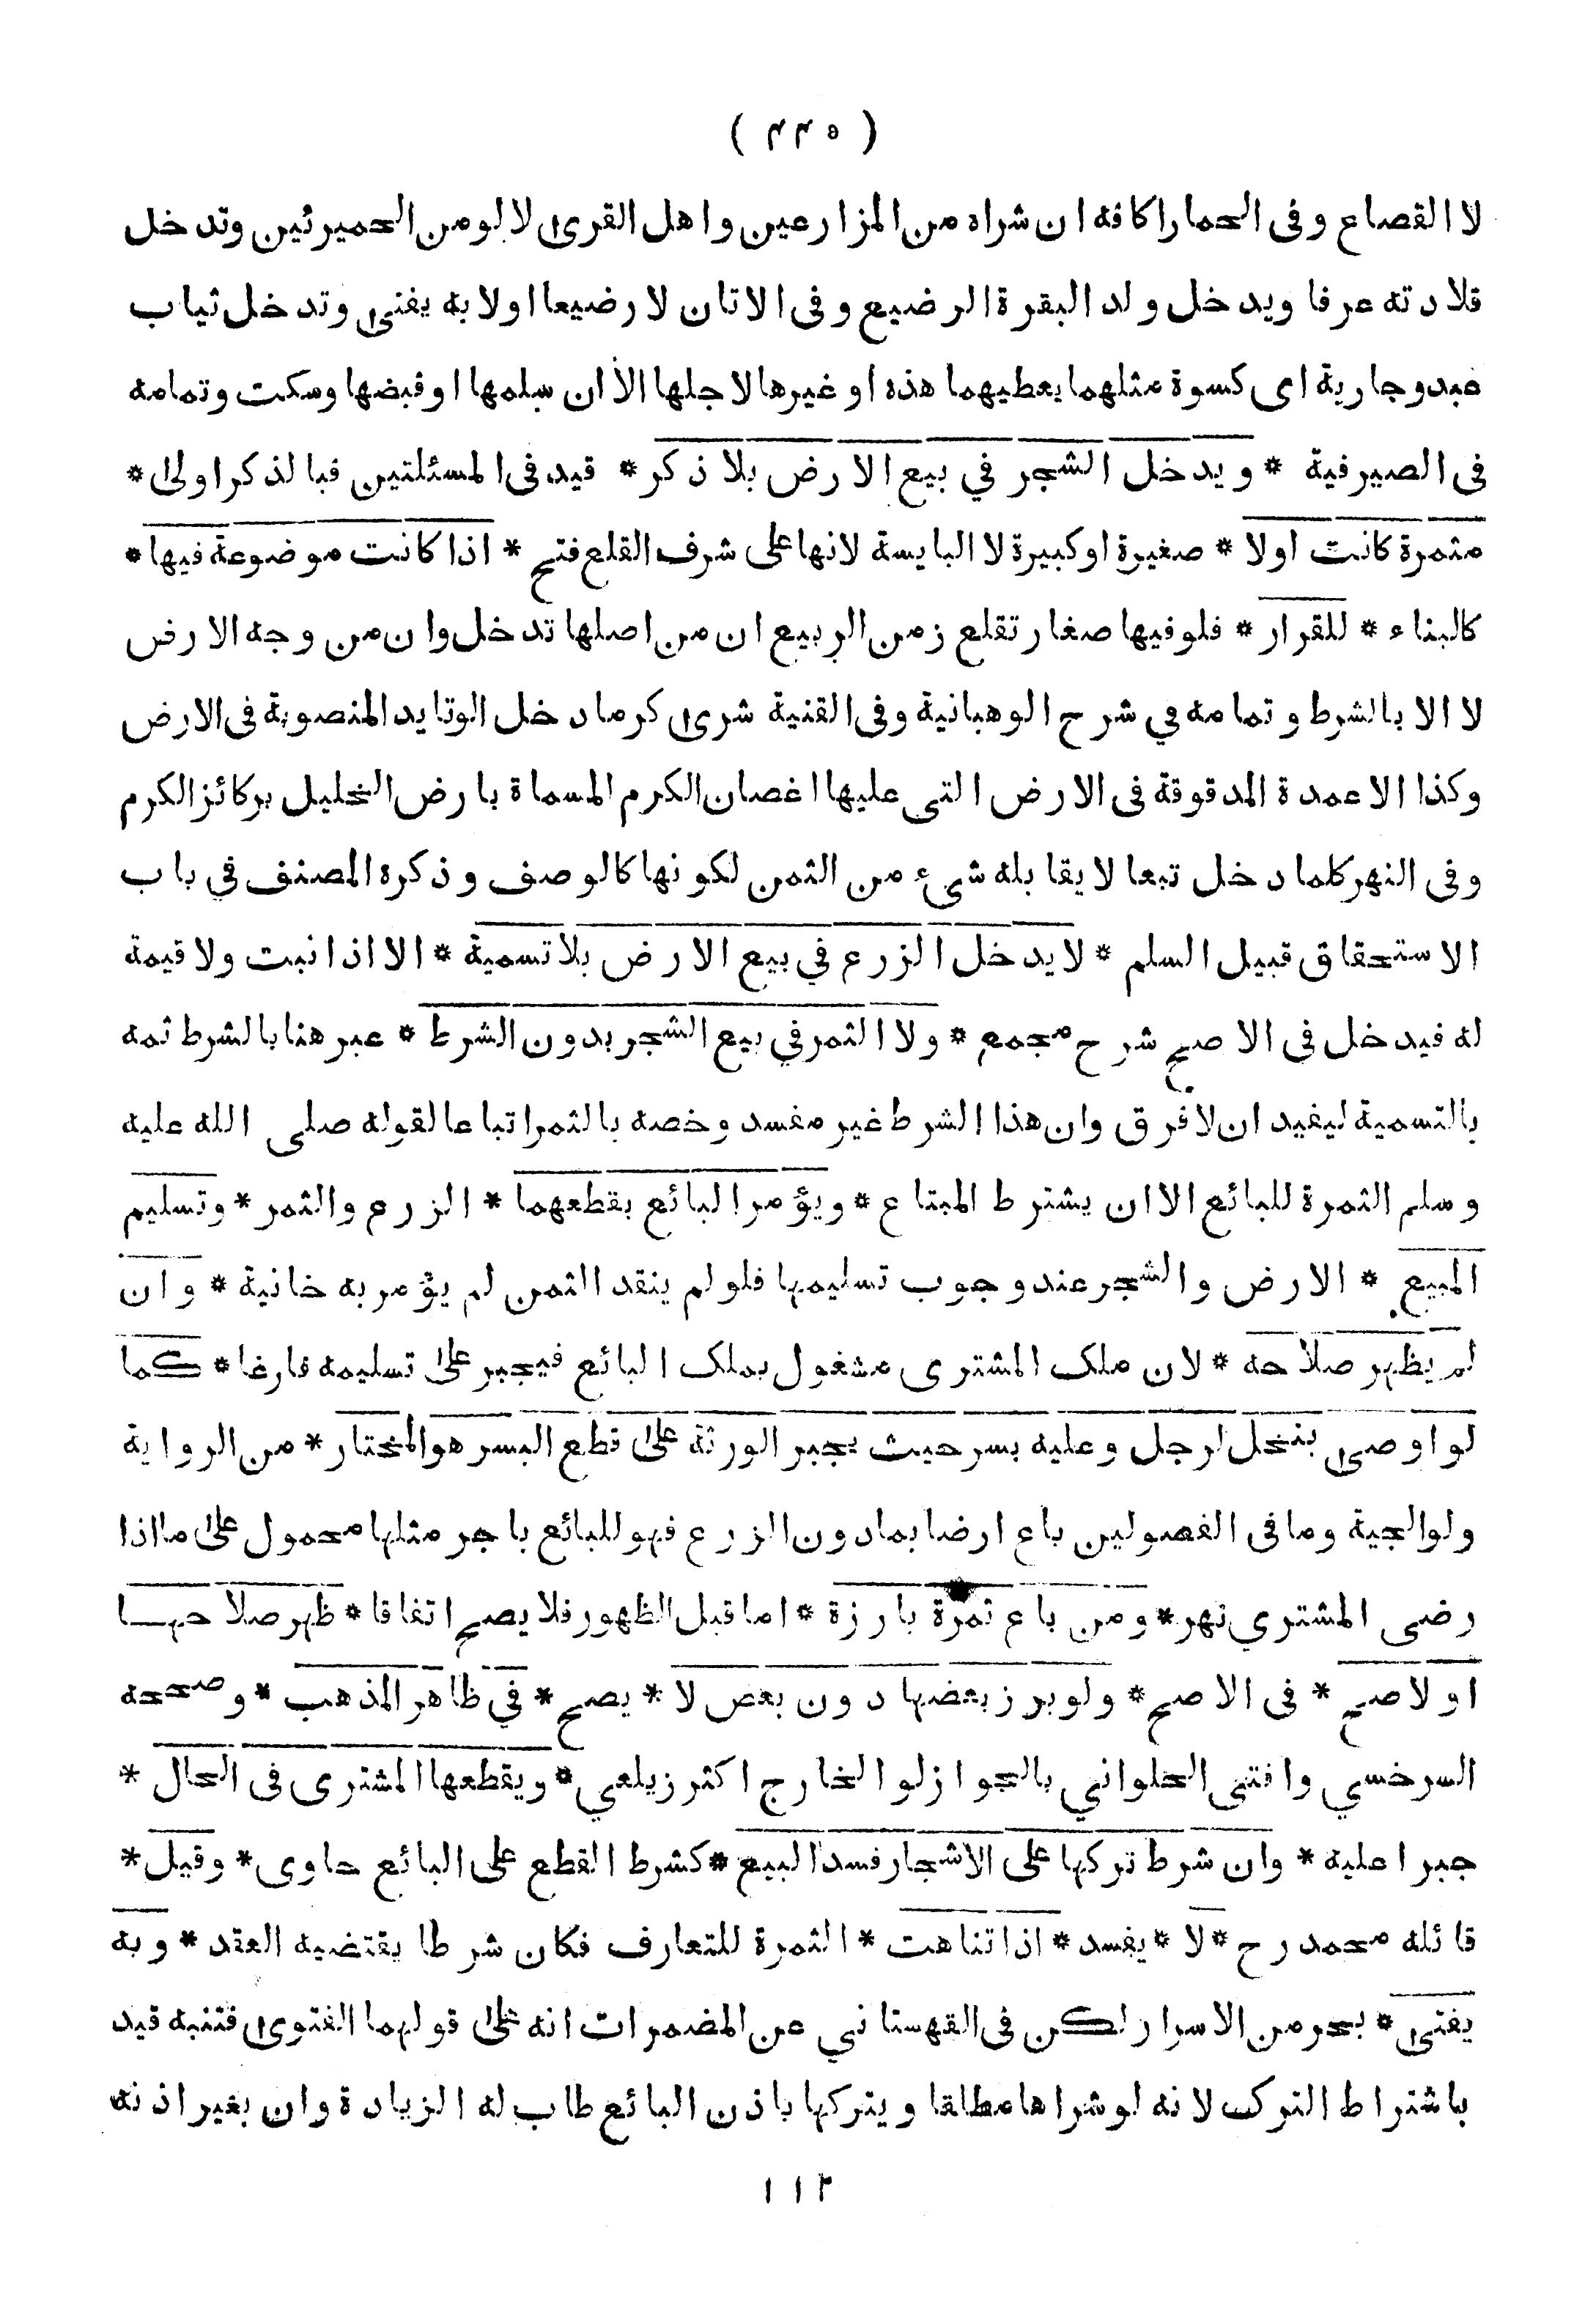 ( ٤٤٥ )
لا القصاع وفى الحمار اكافه ان شراه من المزارعين واهل القرى لا لو من الحميرئين وتدخل
قلادته عرفا ويدخل ولد البقرة الرضيع وفى الاتان لا رضيعا اولا به يفتى وتدخل ثياب
عبد وجارية اى كسوة مثلهما يعطيهما هذه او غيرها لا جلها الا ان سلمها او قبضها وسكت وتمامه
فى الصيرفية * ويدخل الشجر في بيع الارض بلا ذكر * قيد فى المسئلتين فبا لذكر اولى *
مثمرة كانت اولا * صغيرة او كبيرة لا اليابسة لانها على شرف القلع فتح * اذا كانت موضوعة فيها *
كالبناء * للقرار * فلو فيها صغار تقلع زمن الربيع ان من اصلها تدخل وان من وجه الارض
لا الا بالشرط وتمامه في شرح الوهبانية وفى القنية شرى كرما دخل الوتايد المنصوبة فى الارض
وكذا الاعمدة المدقوقة فى الارض التى عليها اغصان الكرم المسماة بارض الخليل بركائز الكرم
وفى النهر كلما دخل تبعا لا يقابله شىء من الثمن لكونها كالوصف وذكره المصنف في باب
الاستحقاق قبيل السلم * لا يدخل الزرع في بيع الارض بلا تسمية * الا اذا نبت ولا قيمة
له فيدخل فى الاصح شرح مجمع * ولا الثمر في بيع الشجر بدون الشرط * عبر هنا بالشرط ثمه
بالتسمية ليفيد ان لا فرق وان هذا الشرط غير مفسد وخصه بالثمر اتباعا لقوله صلى الله عليه
وسلم الثمرة للبائع الا ان يشترط المبتاع * ويؤمر البائع بقطعهما * الزرع والثمر * وتسليم
المبيع * الارض والشجر عند وجوب تسليمها فلو لم ينقد الثمن لم يؤمر به خانية * وان
لم يظهر صلاحه * لان ملك المشترى مشغول بملك البائع فيجبر على تسليمه فارغا * كما
لو اوصى بنخل لرجل وعليه بسر حيث يجبر الورثة على قطع البسر هو المختار * من الرواية
ولوالجية وما فى الفصولين باع ارضا بما دون الزرع فهو للبائع باجر مثلها محمول على ما اذا
رضى المشتري نهر * ومن باع ثمرة بارزة * اما قبل الظهور فلا يصح اتفاقا * ظهر صلاحها
اولا صح * فى الاصح * ولو برز بعضها دون بعض لا * يصح * في ظاهر المذهب * وصححه
السرخسي وافتى الحلواني بالجواز لو الخارج اكثر زيلعي * ويقطعها المشترى فى الحال *
جبرا عليه * وان شرط تركها على الاشجار فسد البيع * كشرط القطع على البائع حاوى * وقيل *
قائله محمد رح * لا * يفسد * اذا تناهت * الثمرة للتعارف فكان شرطا يقتضيه العقد * وبه
يفتى * بحر من الاسرار لكن فى القهستاني عن المضمرات انه على قولهما الفتوى فتنبه قيد
باشتراط الترك لانه لو شراها مطلقا ويتركها باذن البائع طاب له الزيادة وان بغير اذنه
١١٢